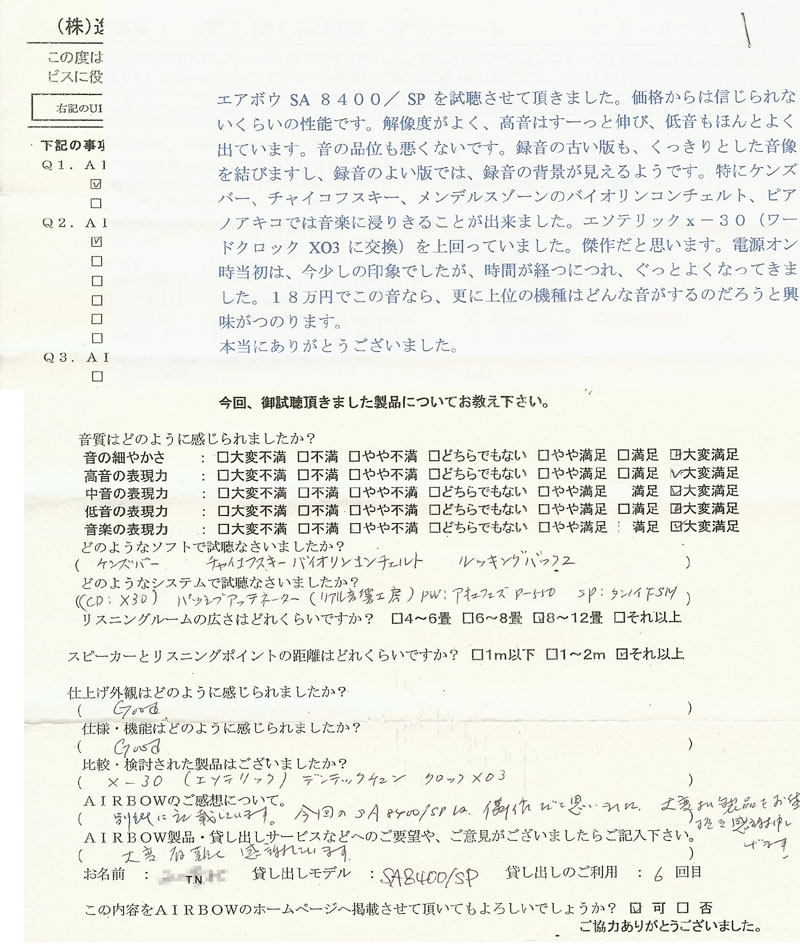 (株)逸
この度は
ビスに役
右記のUI
下記の事項
Q1. AI
Q2. AI
Q3. AI
エアボウ SA 8400/ SP を試聴させて頂きました。価格からは信じられな
いくらいの性能です。解像度がよく、高音はすーっと伸び、低音もほんとよく
出ています。音の品位も悪くないです。録音の古い版も、くっきりとした音像
を結びますし、録音のよい版では、録音の背景が見えるようです。特にケンズ
バー、チャイコフスキー、メンデルスゾーンのバイオリンコンチェルト、ピア
ノアキコでは音楽に浸りきることが出来ました。エソテリックx-30(ワー
ドクロック XO3 に交換)を上回っていました。傑作だと思います。電源オン
時当初は、今少しの印象でしたが、時間が経つにつれ、ぐっとよくなってきま
した。18万円でこの音なら、更に上位の機種はどんな音がするのだろうと興
味がつのります。
本当にありがとうございました。
今回、御試聴頂きました製品についてお教え下さい。
音質はどのように感じられましたか?
音の細やかさ : □大変不満 □不満 □やや不満 □どちらでもない □やや満足 □満足 ☑大変満足
高音の表現力 : □大変不満 □不満 □やや不満 □どちらでもない □やや満足 □満足 ☑大変満足
中音の表現力 : □大変不満 □不満 □やや不満 □どちらでもない □やや満足 満足 ☑大変満足
低音の表現力 : □大変不満 □不満 □やや不満 □どちらでもない □やや満足 □満足 ☑大変満足
音楽の表現力 : □大変不満 □不満 □やや不満 □どちらでもない □やや満足 満足 ☑大変満足
どのようなソフトで試聴なさいましたか?
( ケンズバー チャイコフスキーバイオリンコンチェルト ルッキングバック2 )
どのようなシステムで試聴なさいましたか?
((CD:X30) パッシブアッテネーター(リアル音響工房) PW:アキュフェズ P-550 SP:タンノイFSM )
リスニングルームの広さはどれくらいですか? □4~6畳 □6~8畳 ☑8~12畳 □それ以上
スピーカーとリスニングポイントの距離はどれくらいですか? □1m以下 □1~2m ☑それ以上
仕上げ外観はどのように感じられましたか?
( Good )
仕様・機能はどのように感じられましたか?
( Good )
比較・検討された製品はございましたか?
( X-30 (エソテリック) デンテックチュン クロックX03 )
AIRBOWのご感想について。
( 別紙に記載しています。 今回のSA8400/SPは、傑作だと思いました。
AIRBOW製品・貸し出しサービスなどへのご要望や、ご意見がございましたらご記入下さい。
( 大変 感謝しています。 )
お名前 : TN 貸し出しモデル : SA8400/SP 貸し出しのご利用 : 6 回目
この内容をAIRBOWのホームページへ掲載させて頂いてもよろしいでしょうか? ☑可 □否
ご協力ありがとうございました。